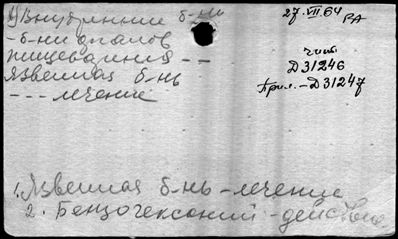 Внутренние б-ни
-б-ни органов
пищеварения - -
Язвенная б-нь
- - - лечение
27.VII.64 РА
чит
Д31246
Прил.-Д31247
1. Язвенная б-нь - лечение
2. Бензогексоний - действие